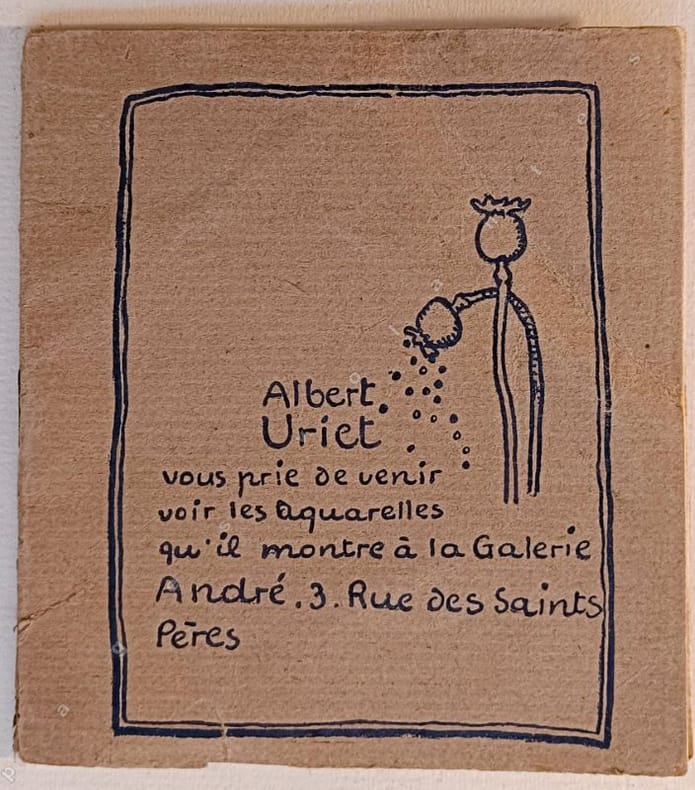 Albert
Uriet
vous prie de venir
voir les aquarelles
qu'il montre à la Galerie
André. 3. Rue des Saints
Pères